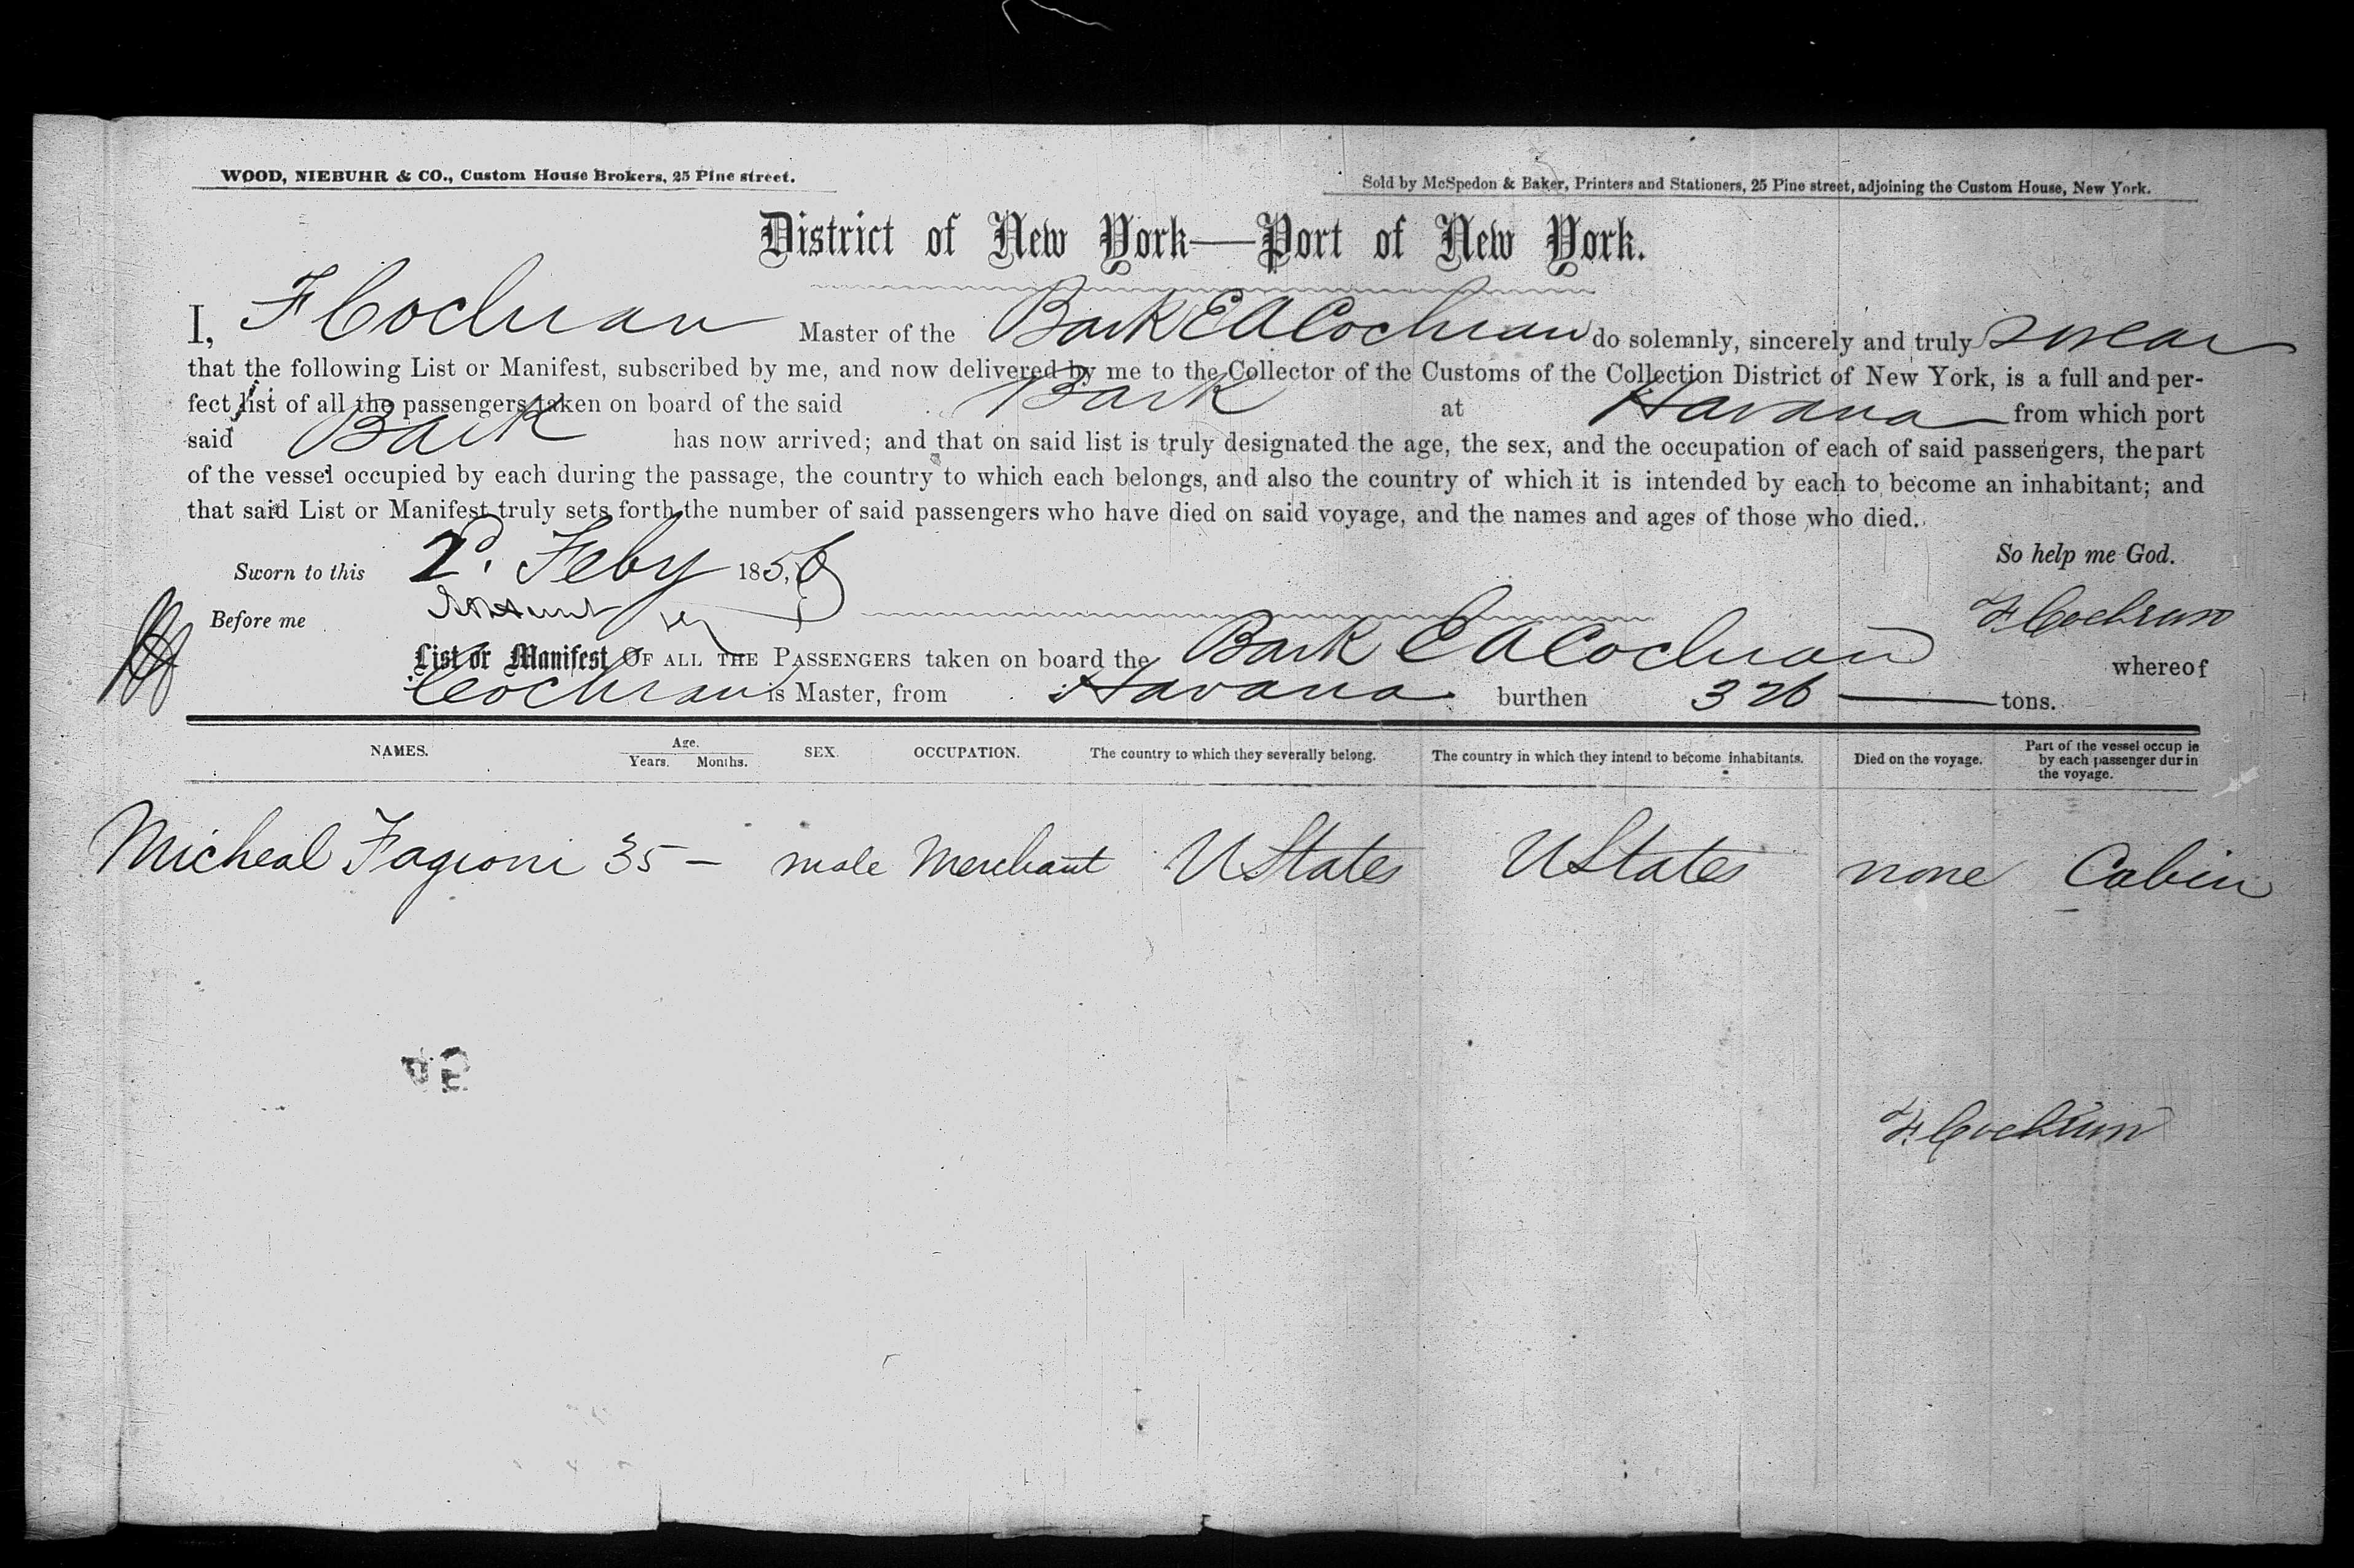 WOOD, NIEBUHR & CO., Custom House Brokers, 25 Pine street.
Sold by McSpedon & Baker, Printers and Stationers, 25 Pine street, adjoining the Custom House, New York.
District of New York—Port of New York.
I, F Cochran Master of the Bark E A Cochran do solemnly, sincerely and truly swear
that the following List or Manifest, subscribed by me, and now delivered by me to the Collector of the Customs of the Collection District of New York, is a full and per-
fect list of all the passengers taken on board of the said Bark at Havana from which port
said Bark has now arrived; and that on said list is truly designated the age, the sex, and the occupation of each of said passengers, the part
of the vessel occupied by each during the passage, the country to which each belongs, and also the country of which it is intended by each to become an inhabitant; and
that said List or Manifest truly sets forth the number of said passengers who have died on said voyage, and the names and ages of those who died.
So help me God.
Sworn to this 2d. Feby 1856
Before me
F. Cochran
List or Manifest OF ALL THE PASSENGERS taken on board the Bark E A Cochran whereof
Cochran is Master, from Havana burthen 326 tons.
NAMES. Age. Years. Months. SEX. OCCUPATION. The country to which they severally belong. The country in which they intend to become inhabitants. Died on the voyage. Part of the vessel occup ie by each passenger dur in the voyage.
Micheal Fagioni 35 — male Merchant U States U States none Cabin
F. Cochran